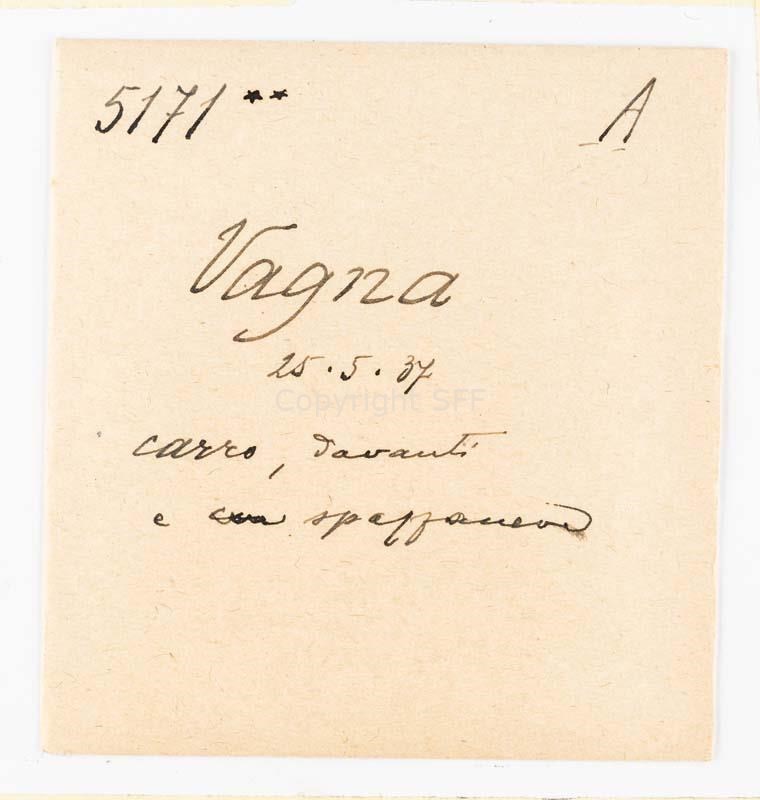 5171 ** A
Vagna
25.5.37
Copyright SFF
carro, davanti
e spazzaneve